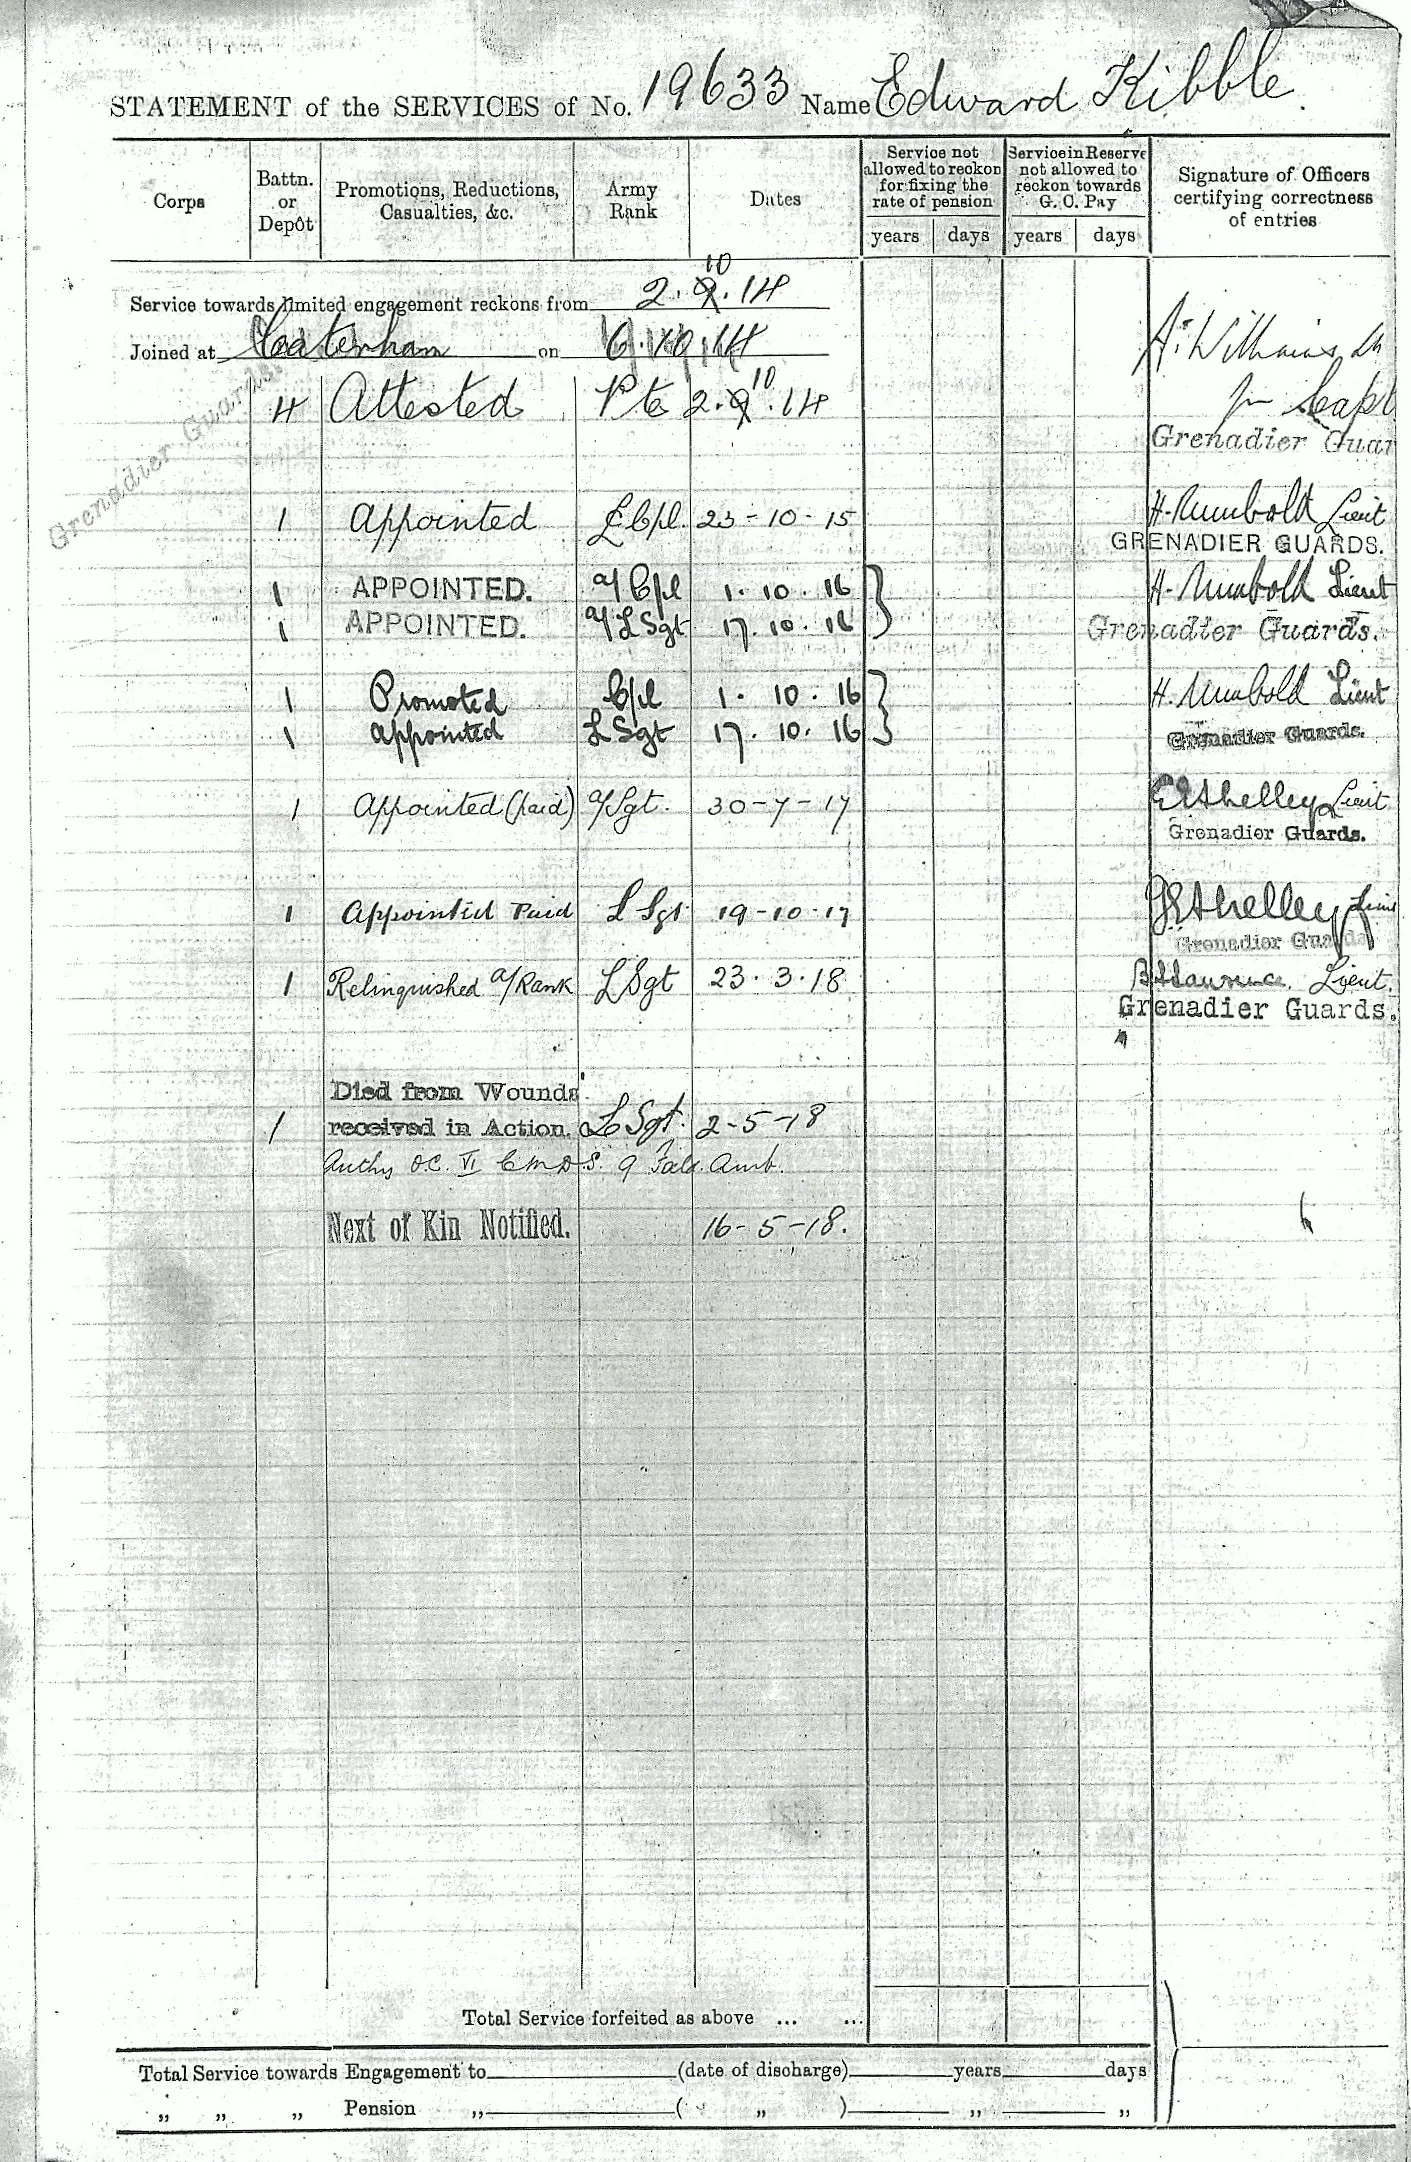 STATEMENT of the SERVICES of No. 19633 Name Edward Kibble.
Corps
Battn. or Depôt
Promotions, Reductions, Casualties, &c.
Army Rank
Dates
Service not allowed to reckon for fixing the rate of pension
Service in Reserve not allowed to reckon towards G. C. Pay
Signature of Officers certifying correctness of entries
years days years days
10
Service towards limited engagement reckons from 2.9.14
Joined at Caterham on 6.10.14
Grenadier Guards.
4 Attested Pte 2.9.14 10
A. Williams
for Capt
Grenadier Guar
1 Appointed L Cpl. 23-10-15 H. Rumbold Lieut
GRENADIER GUARDS.
1 APPOINTED. a/Cpl 1.10.16 H. Rumbold Lieut
1 APPOINTED. a/LSgt 17.10.16 Grenadier Guards.
1 Promoted Cpl 1.10.16 H. Rumbold Lieut
1 Appointed LSgt 17.10.16 Grenadier Guards.
1 Appointed (paid) a/Sgt. 30-7-17 Shelley Lieut
Grenadier Guards.
1 Appointed Paid L Sgt 19-10-17 Shelley
Grenadier Guards
1 Relinquished a/Rank LSgt 23.3.18 Lawrence. Lieut.
Grenadier Guards.
Died from Wounds
1 received in Action. LSgt. 2-5-18
Authy OC. VI C.M.D.S. 9 Fald. Amb.
Next of Kin Notified. 16-5-18.
Total Service forfeited as above ... ...
Total Service towards Engagement to (date of discharge) years days
„ „ „ Pension „ ( „ ) „ „